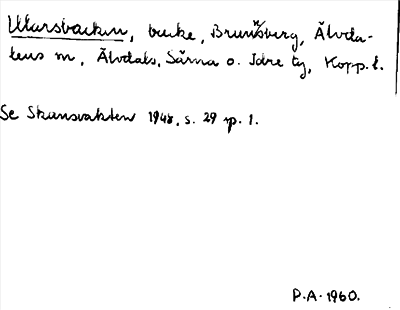 Ularsbacken, backe, Brunnsberg, Älvda-
lens sn, Älvdals, Särna o. Idre tg, Kopp. l.
Se Skansvakten 1948, s. 29 sp. 1.
P.A. 1960.